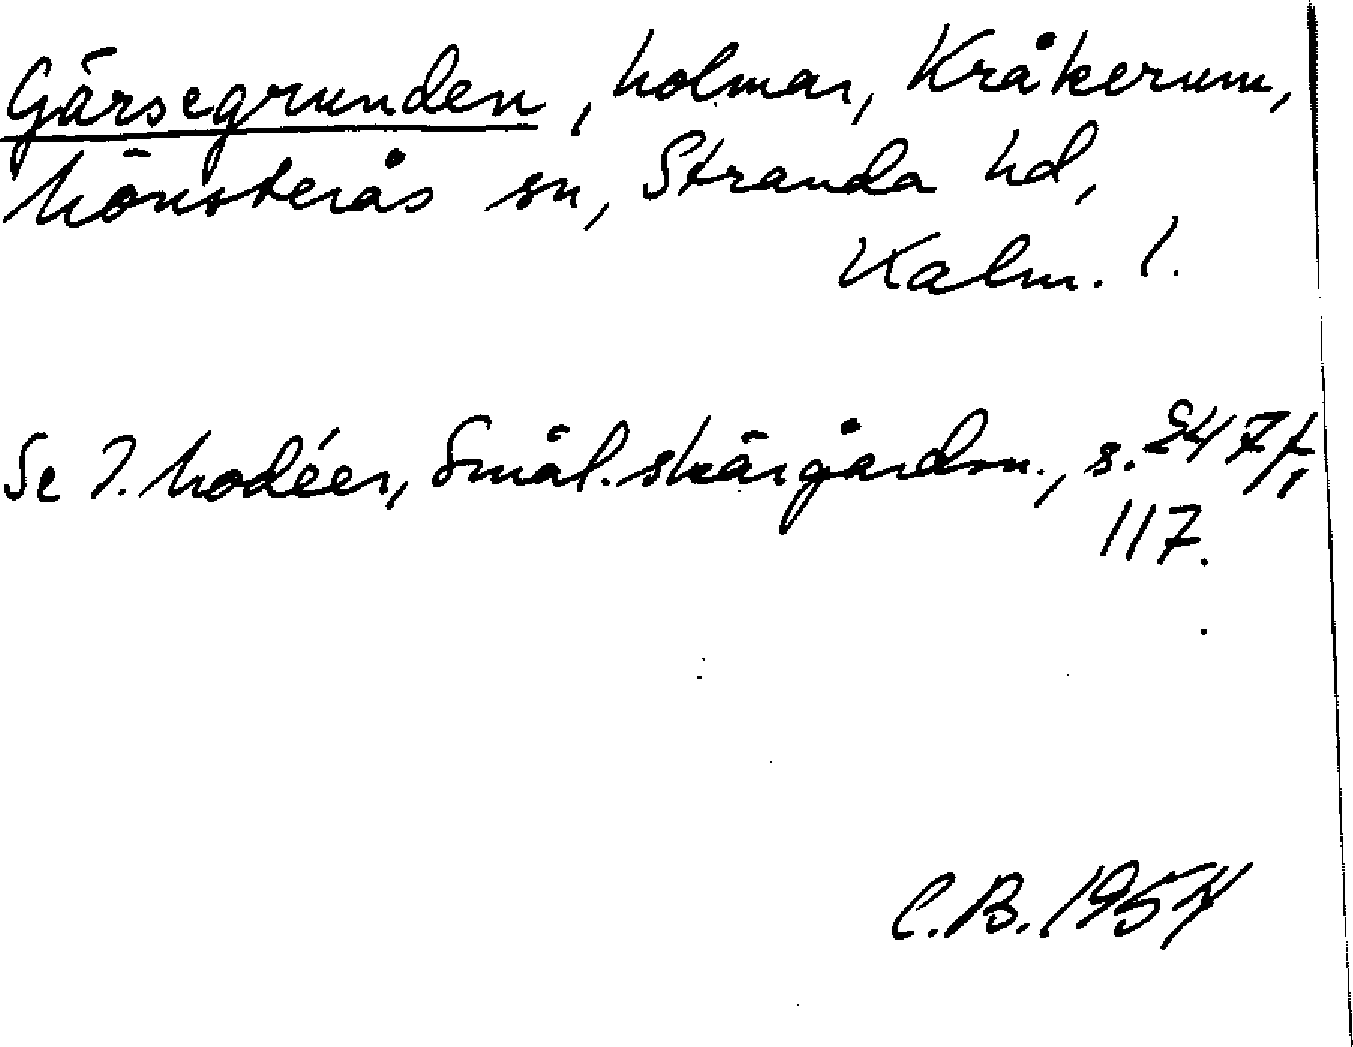 Gärsegrunden, holmar, Kråkerum,
Mönsterås sn, Stranda hd,
Kalm. l.
Se I. Modéer, Smål. skärgårdsn., s. 247 f,
117.
C.B. 1954